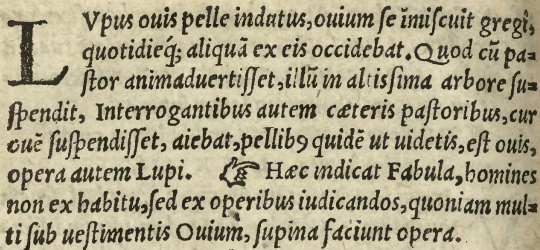 LVpus ouis pelle indutus, ouium se īmiscuit gregi,
quotidieq́; aliquā ex eis occidebat. Quod cū pa-
stor animaduertisset, illū in altissima arbore su-
spendit, Interrogantibus autem cæteris pastoribus, cur
ouē suspendisset, aiebat, pellibꝰ quidē ut uidetis, est ouis,
opera autem Lupi. ☞ Hæc indicat Fabula, homines
non ex habitu, sed ex operibus iudicandos, quoniam mul-
ti sub uestimentis Ouium, supina faciunt opera.